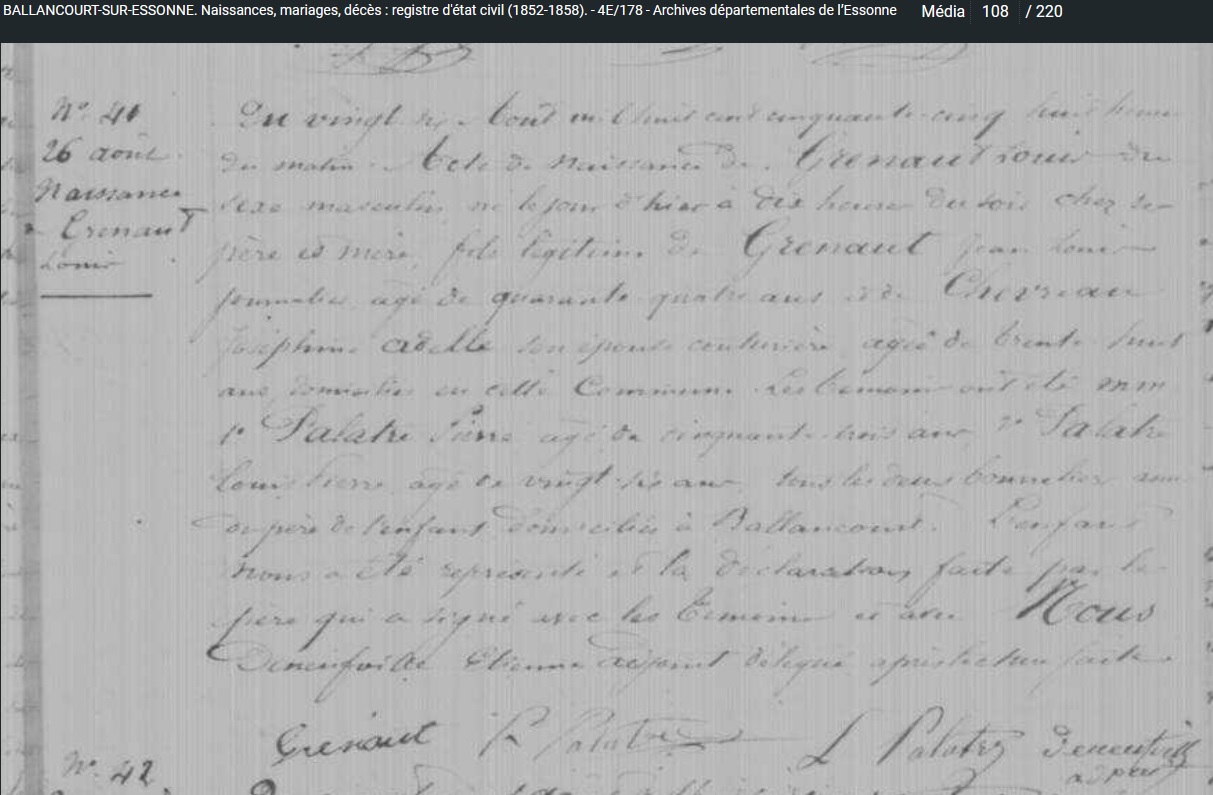 BALLANCOURT-SUR-ESSONNE. Naissances, mariages, décès : registre d'état civil (1852-1858). - 4E/178 - Archives départementales de l'Essonne Média 108 / 220
N° 41
26 août
Naissance
Grenaut
Louis
Du vingt six Août mil huit cent cinquante-cinq huit heures
du matin. Acte de Naissance de Grenaut Louis du
sexe masculin, né le jour d'hier à dix heures du soir chez ses
père et mère, fils légitime de Grenaut Jean Louis
journalier, agé de quarante quatre ans et de Chevreau
Joséphine Adelle son épouse couturière agée de trente huit
ans, domiciliés en cette Commune. Les témoins ont été MM
1° Palatre Pierre agé de cinquante trois ans 2° Palatre
Louis Pierre agé de vingt six ans, tous les deux bonnetier amis
du père de l'enfant domiciliés à Ballancourt. L'enfant
nous a été représenté et la déclaration faite par le
père qui a signé avec les témoins et avec Nous
Etienne adjoint délégué après lecture faite
Grenaut P Palatre L Palatre
N° 42